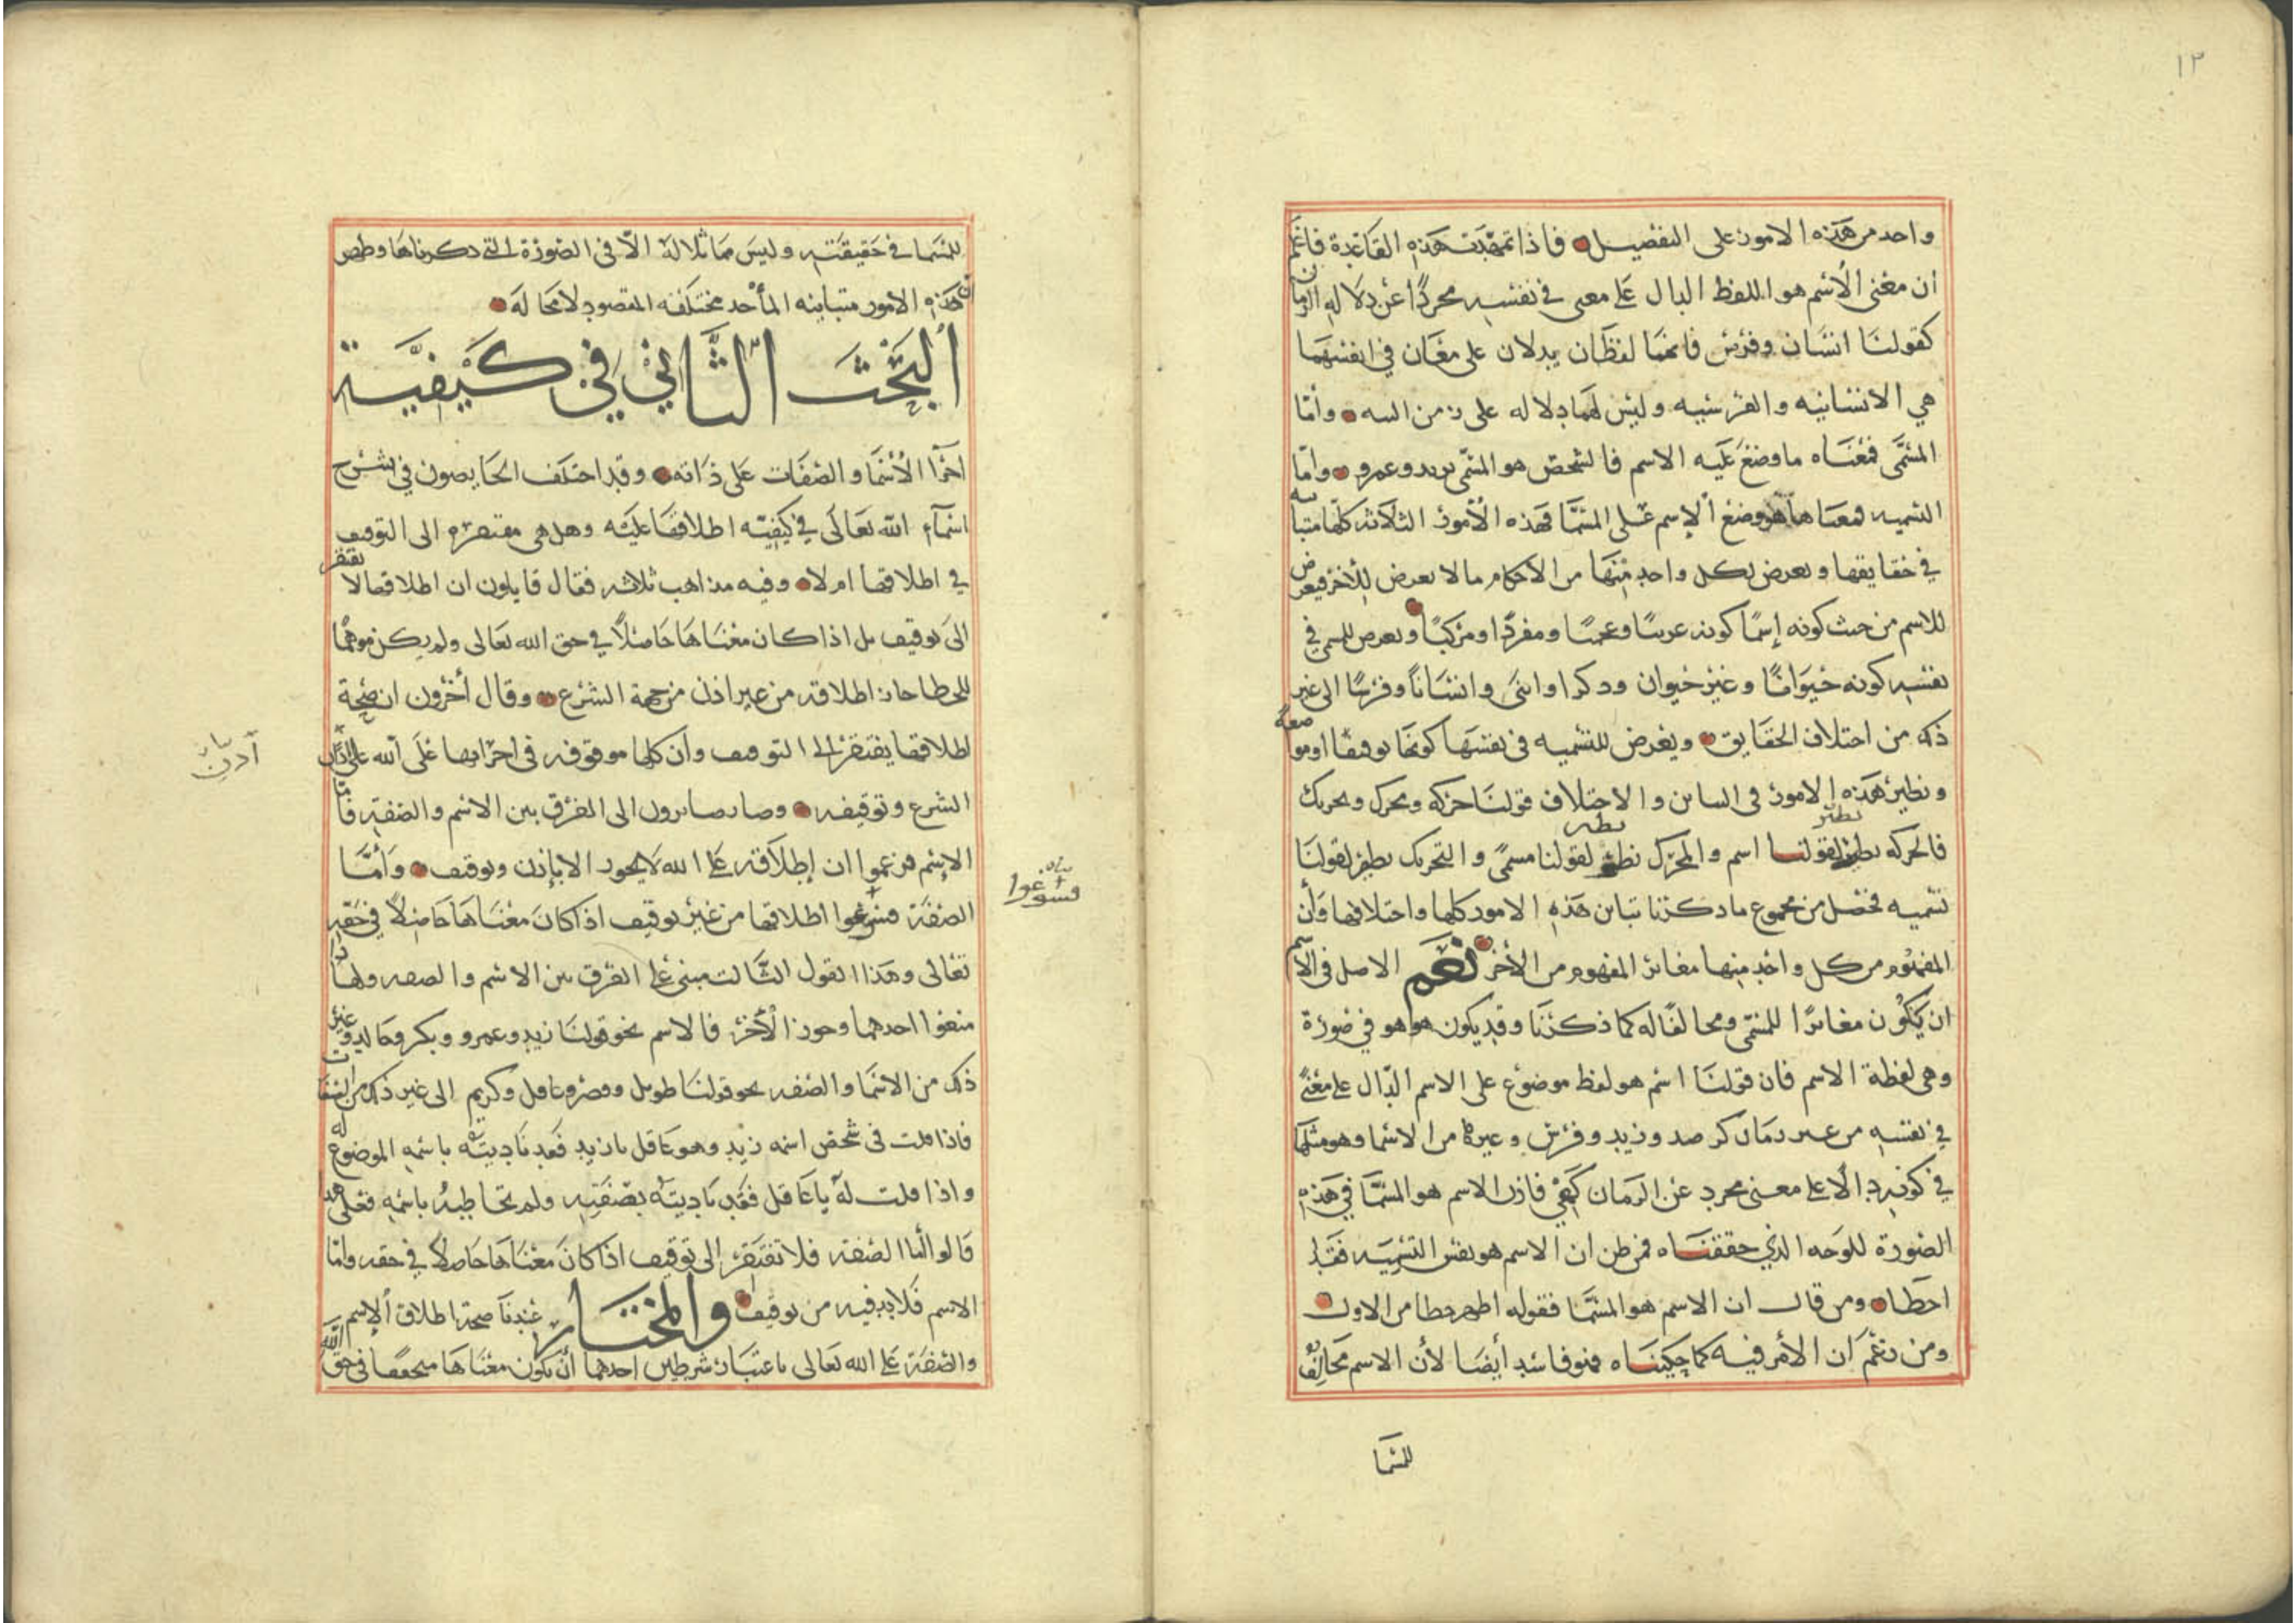 ١٢
واحد من هذه الامور على التفصيل فاذا تمهدت هذه القاعدة فاعلم
ان معنى الاسم هو اللفظ الدال على معنى في نفسه مجردًا عن دلاله الزمان
كقولنا انسان وفرس فانهما لفظان يدلان على معان في انفسهما
هي الانسانيه والفرسيه وليس لهما دلاله على زمن البته واما
المسمى فمعناه ما وضع عليه الاسم فالشخص هو المسمى بزيد وعمرو واما
التسميه فمعناها هو وضع الاسم على المسما فهذه الأمور الثلاثه كلها متباينه
في حقايقها ويعرض لكل واحد منها من الاحكام ما لا يعرض للأخر فيعرض
للاسم من حيث كونه إسمًا كونه عربيًا وعجميًا ومفردًا ومركبًا ويعرض للمسمى في
نفسه كونه حيوانًا وغير حيوان وذكرا وانثى وانسانًا وفرسًا الى غير
ذلك من اختلاف الحقايق ويعرض للتسميه في نفسها كونها توقيفًا او مواضعة
ونظير هذه الامور في التباين والاختلاف قولنا حركه ومحرك وتحريك
نظير
نظير
فالحركه نظير لقولنا اسم والمحرك نظير لقولنا مسمى والتحريك نظير لقولنا
تسميه فحصل من مجموع ما ذكرنا تباين هذه الامور كلها واختلافها وأن
المفهوم من كل واحد منها مغائر المفهوم من الأخر نعم الاصل في الاسم
ان يكون مغائرًا للمسمى ومخالفًا له كما ذكرنا وقد يكون هو هو في صورة
وهي لفظة الاسم فان قولنا اسم هو لفظ موضوع على الاسم الدال على معنى
في نفسه من غير زمان كـ وزيد وفرس وغيرها من الاسما وهو مثلها
في كونه دالًا على معنى مجرد عن الزمان كهي فاذن الاسم هو المسما في هذه
الصورة للوجه الذي حققناه فمن ظن ان الاسم هو نفس التسميه فقد
اخطا ومن قال ان الاسم هو المسما فقوله اظهر خطا من الاول
ومن زعم ان الأمر فيه كما حكيناه فهو فاسد أيضا لأن الاسم مخالف
للمسما
للمسما في حقيقته وليس مماثلا له الّا في الصورة التي ذكرناها وظهر
ان هذه الامور متباينه المأخذ مختلفه المقصود لا محاله
البحث الثاني في كيفية
اجرا الأسما والصفات على ذاته وقد اختلف الخايضون في شرح
اسماء الله تعالى في كيفيّه اطلاقها عليه وهل هي مفتقره الى التوقيف
في اطلاقها ام لا وفيه مذاهب ثلاثه فقال قايلون ان اطلاقها لا يفتقر
الى توقيف بل اذا كان معناها حاصلاً في حق الله تعالى ولم يكن موهمًا
للخطا جاز اطلاقه من غير اذن من جهة الشرع وقال أخرون ان صحة
اطلاقها يفتقر الى التوقيف وان كلها موقوفه في اجرايها على الله على اذن
الشرع وتوقيفه وصار صايرون الى الفرق بين الاسم والصفة فاما
الإسم فزعموا ان إطلاقه على الله لا يجوز الا بإذن وتوقيف وأمّا
الصفة فسوغوا اطلاقها من غير توقيف اذا كان معناها حاصلًا في حقه
بيان
فسوغوا
تعالى وهذا القول الثالث مبني على الفرق بين الاسم والصفه ولهذا
منعوا احدهما وجوزوا الأخر فالاسم نحو قولنا زيد وعمرو وبكر وخالد وغير
ذلك من الاسما والصفه نحو قولنا طويل وقصير وعاقل وكريم الى غير ذلك من الصفات
فاذا قلت في شخص اسمه زيد وهو عاقل يا زيد فقد ناديته باسمه الموضوع له
واذا قلت له يا عاقل فقد ناديته بصفته ولم تخاطبه باسمه فعلى هذا
قالوا أما الصفة فلا تفتقر الى توقيف اذا كان معناها حاصلا في حقه واما
الاسم فلا بد فيه من توقيف والمختار عندنا صحة اطلاق الإسم
والصفة على الله تعالى باعتبار شرطين احدهما أن يكون معناها متحققا في حق الله